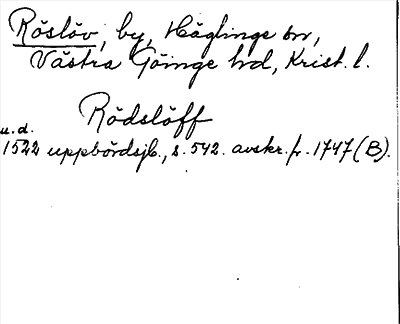 Röslöv, by, Häglinge sn,
Västra Göinge hd, Krist. l.
Rödslöff
u.d.
1522 uppbördsjb., s. 542. avskr. fr. 1747 (B).